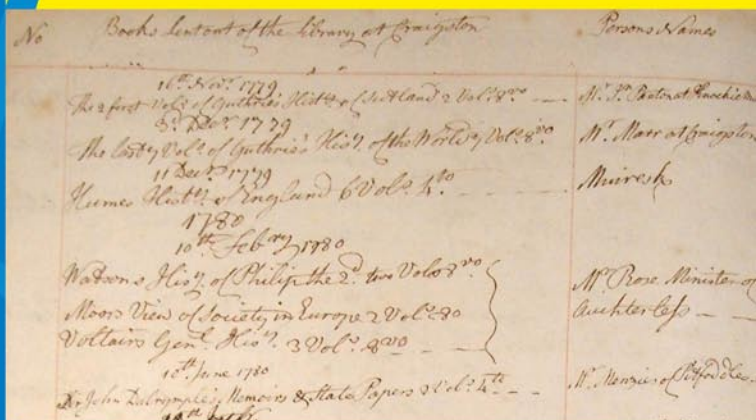 No Books Lent out of the Library at Craigston Persons Names
16th Novr. 1779
The 2 first Vols. of Guthrie's Histy. of Scotland 2 Vol. 8vo Mr. at
3d. Decr. 1779
The last 7 Vols. of Guthrie's Hisy. of the World 7 Vols. 8vo. Mr. Marr at Craigston
11 Decr. 1779
Humes Histy. of England 6 Vols. 4to Muiresk
1780
10th Febry 1780
Watsons Hisy. of Philip the 2d. two Vols 8vo Mr. Rose Minister of
Moors View of Society in Europe 2 Vols. 80 Auchterless
Voltairs Genl. Hisy. 3 Vols. 8vo
10th June 1780
Dr John Dalrymple's Memoirs & State Papers 2 Vols. 4to Mr. Menzies of Pitfoddles